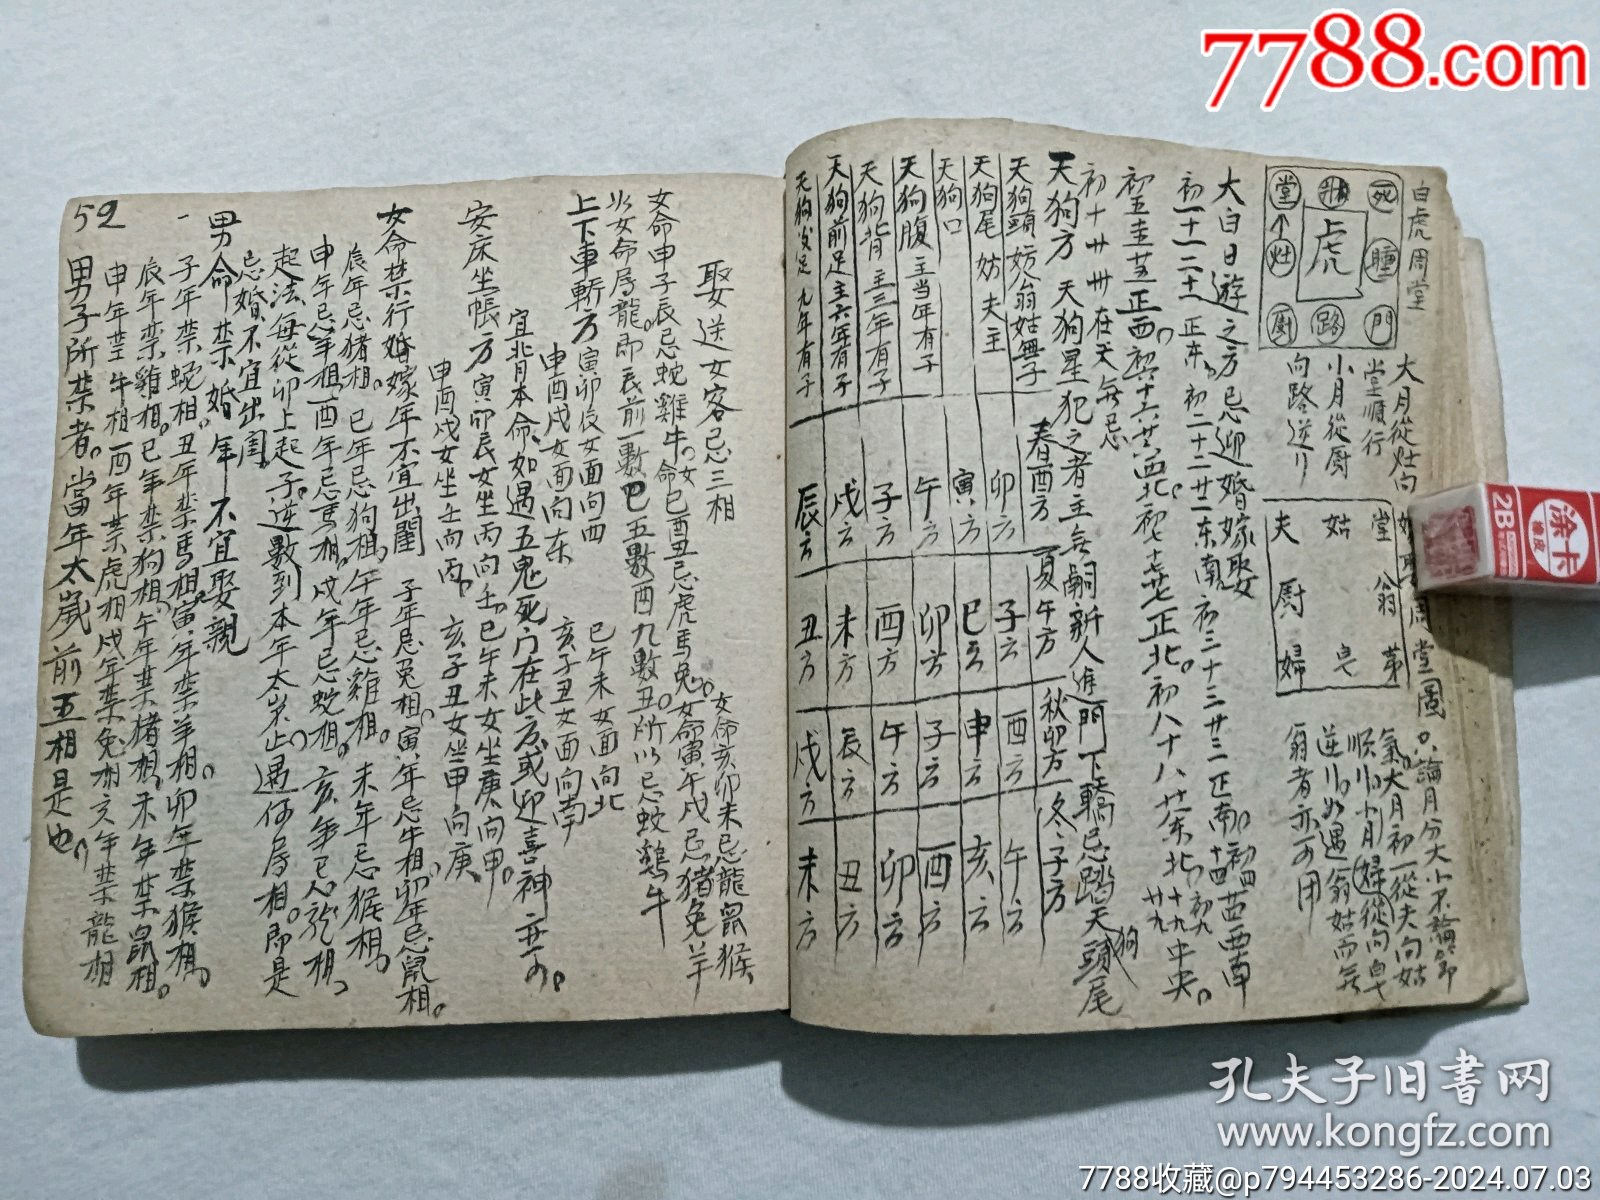 7788.com
白虎周堂
死 睡 門
升 虎 路
堂 灶 廚
大月從灶向
堂順行
小月從厨
向路逆行
周堂圖 只論月分大小不論節
氣 大月初一從夫向姑
順小月婦從向皂
逆 如遇翁姑而無
翁者亦可用
堂 翁 茅
姑 皂
夫 厨 婦
大白日遊之方忌迎婚嫁娶
初一十一二十一正东 初二十二廿二东南 初三十三廿三正南 初四十四廿四西南
初五十五廿五正西 初六十六廿六西北 初七十七廿七正北 初八十八廿八东北 初九十九廿九中央
初十廿卅在天無忌
天狗方 天狗星犯之者主無嗣新人進門下轎忌踏天狗頭尾
春酉方 夏午方 秋卯方 冬子方
天狗頭妨翁姑無子 卯方 子方 酉方 午方
天狗尾妨夫主 寅方 巳方 申方 亥方
天狗口 午方 卯方 子方 酉方
天狗腹主当年有子 子方 酉方 午方 卯方
天狗背主三年有子 戌方 未方 辰方 丑方
天狗前足主六年有子
天狗後足九年有子 辰方 丑方 戌方 未方
娶送女客忌三相
女命亥卯未忌龍鼠猴
女命申子辰忌蛇雞牛 女命巳酉丑忌虎馬兔 女命寅午戌忌猪兔羊
以女命屬龍即辰前一數巳五數酉九數丑所以忌蛇鷄牛
上下車轎方 寅卯辰女面向西 巳午未女面向北
申酉戌女面向东 亥子丑女面向南
宜背本命如遇五鬼死门在此方或迎喜神亦可
安床坐帳方 寅卯辰女坐丙向壬 巳午未女坐庚向甲
申酉戌女坐壬向丙 亥子丑女坐甲向庚
女命禁行婚嫁年不宜出閣 子年忌兔相 寅年忌牛相 卯年忌鼠相
辰年忌猪相 巳年忌狗相 午年忌雞相 未年忌猴相
申年忌羊相 酉年忌馬相 戌年忌蛇相 亥年忌龍相
起法每從卯上起子逆數到本年太岁止遇何屬相即是
忌婚不宜出閣
男命禁婚年不宜娶親
子年禁蛇相 丑年禁馬相 寅年禁羊相 卯年禁猴相
辰年禁雞相 巳年禁狗相 午年禁猪相 未年禁鼠相
申年禁牛相 酉年禁虎相 戌年禁兔相 亥年禁龍相
男子所禁者當年太歲前五相是也
52
2B
涂卡
橡皮
孔夫子旧书网
www.kongfz.com
7788收藏@p794453286-2024.07.03